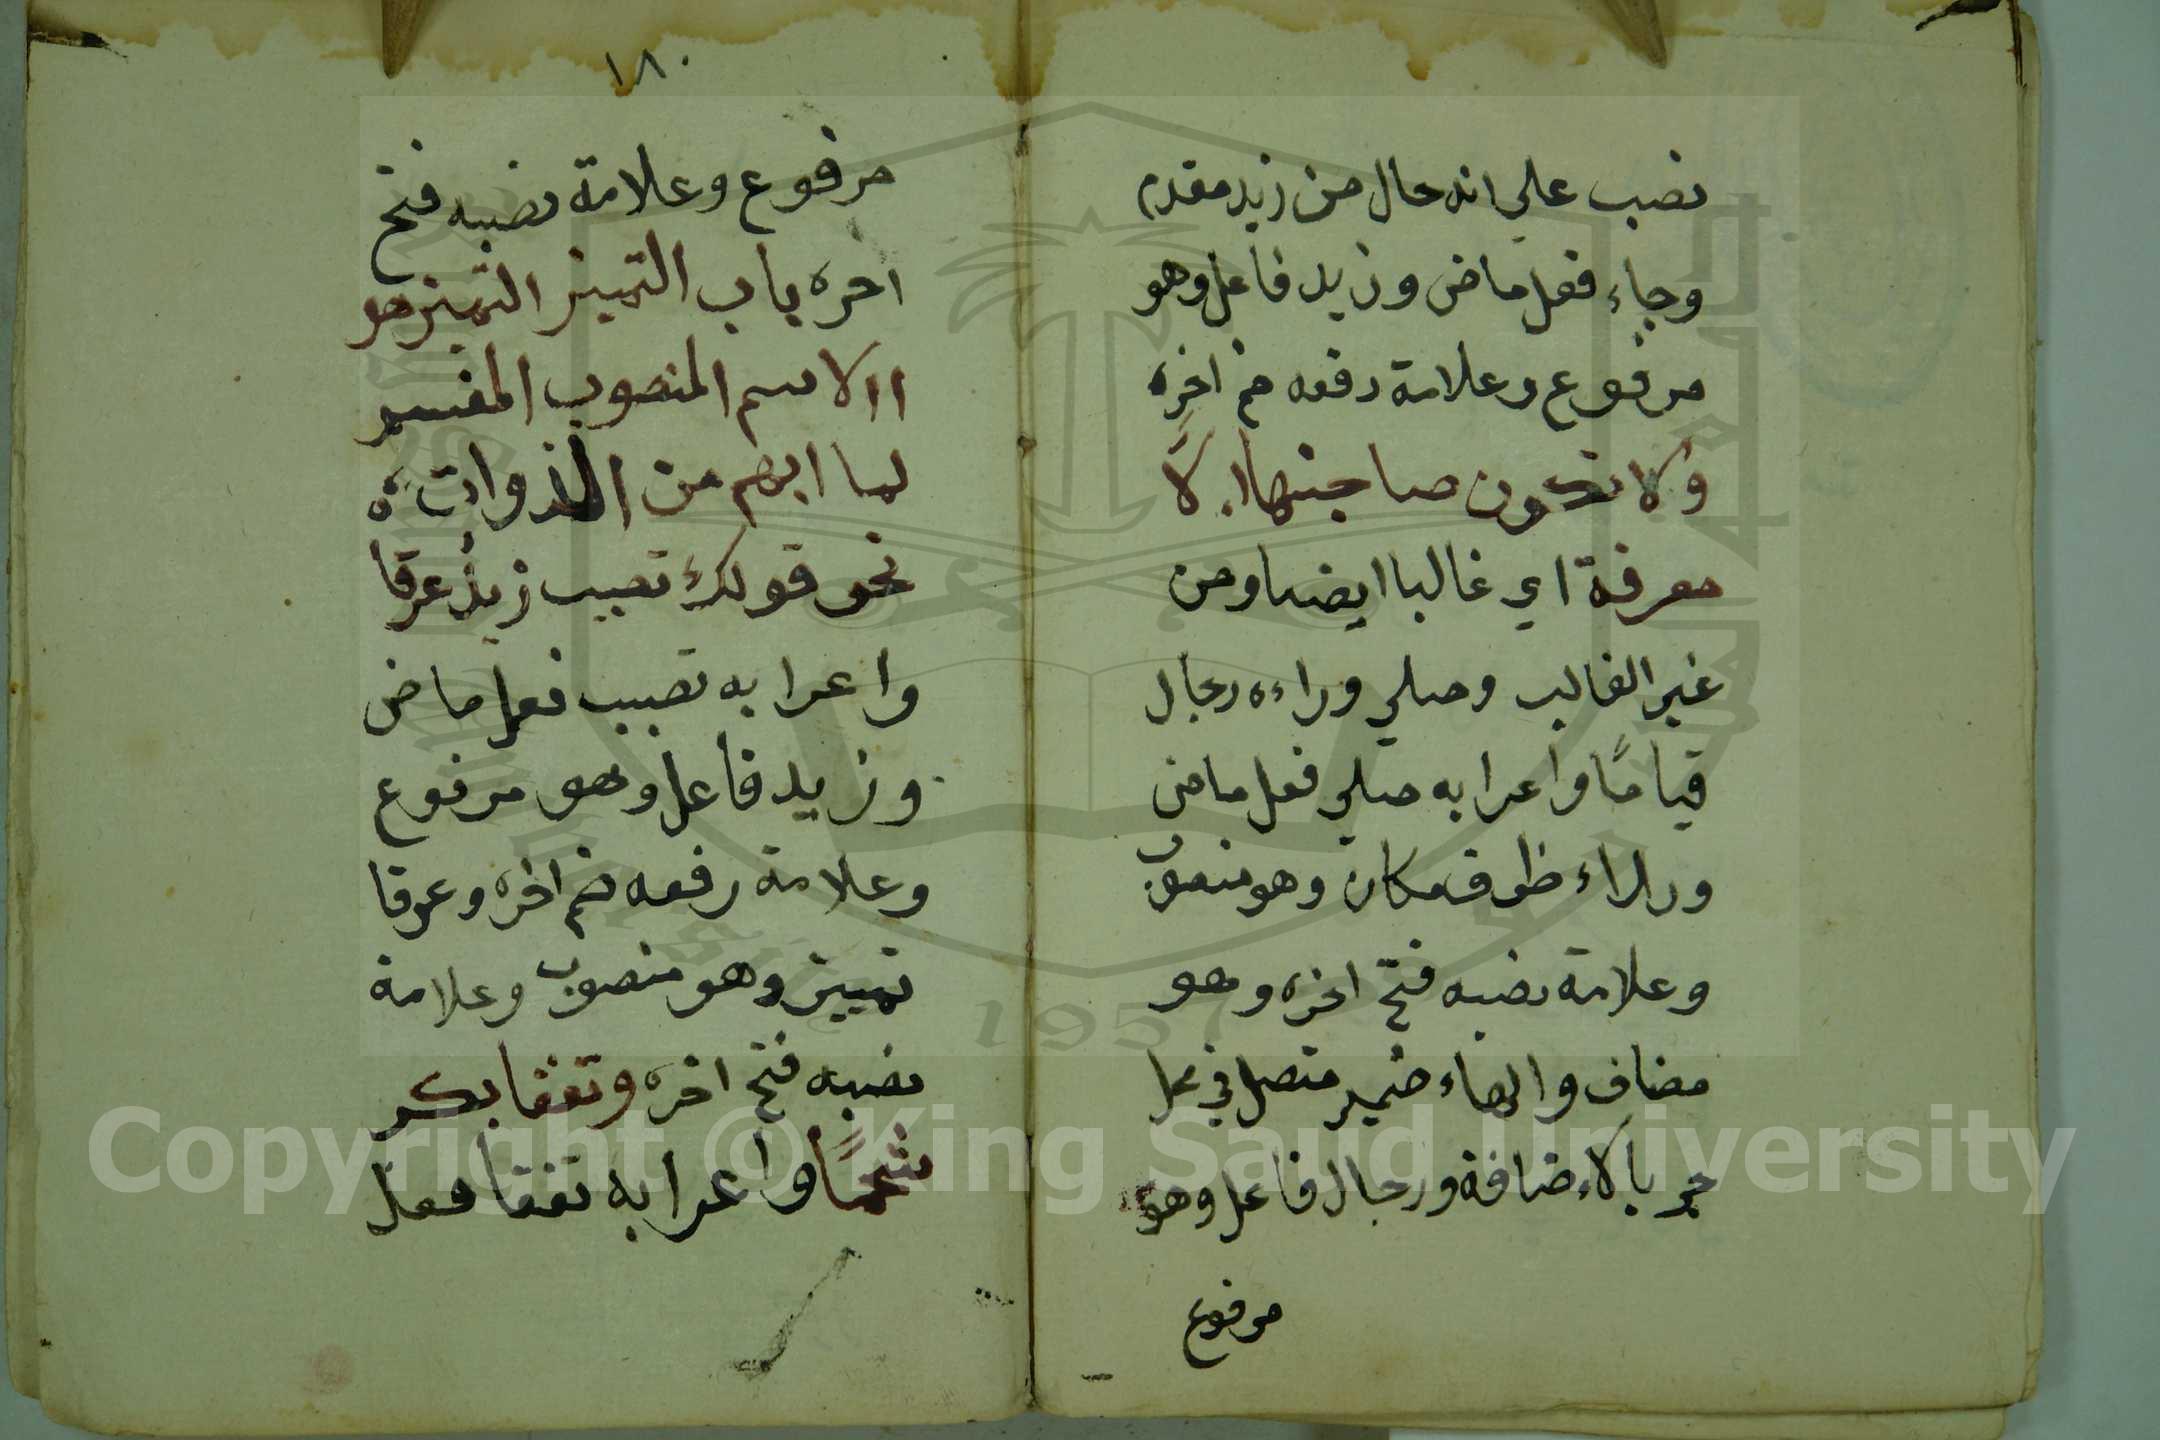 نصب علي انه حال من زيد مقدم
وجاء فعل ماض وزيد فاعل وهو
مرفوع وعلامة رفعه ضم اخره
ولا تكون صاحبها الا
معرفة اي غالبا ايضا ومن
غير الغالب وصلي وراءه رجال
قياما واعرابه صلي فعل ماض
ووراء ظرف مكان وهو منصوب
وعلامة نصبه فتح اخره وهو
مضاف والهاء ضمير متصل في محل
جر بالاضافة ورجال فاعل وهو
مرفوع
١٨٠
مرفوع وعلامة نصبه فتح
اخره باب التمييز التمييز هو
الاسم المنصوب المفسر
لما ابهم من الذوات
نحو قولك تصبب زيد عرقا
واعرابه تصبب فعل ماض
وزيد فاعل وهو مرفوع
وعلامة رفعه ضم اخره وعرقا
تمييز وهو منصوب وعلامة
نصبه فتح اخره وتفقا بكر
شحمًا واعرابه تفقا فعل
Copyright © King Saud University
1957